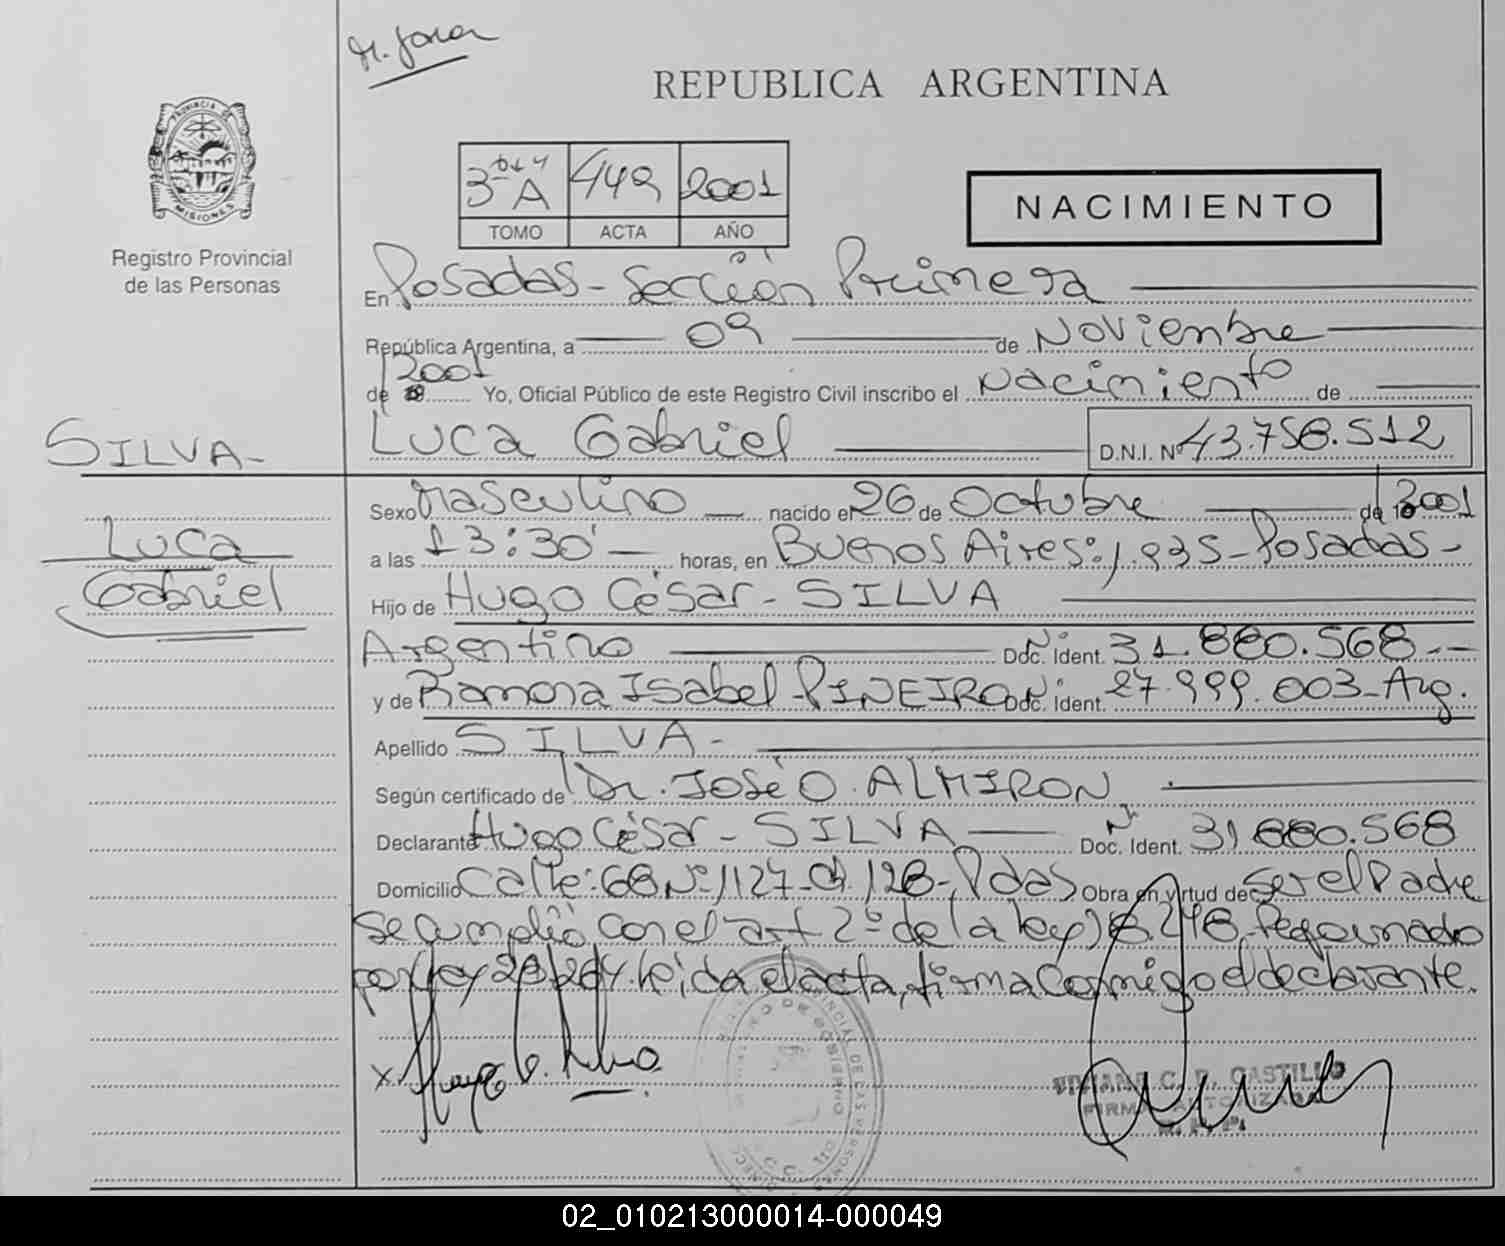 REPUBLICA ARGENTINA
PROVINCIA DE
MISIONES
Registro Provincial
de las Personas
3º A 449 2001
TOMO ACTA AÑO
NACIMIENTO
En Posadas - Sección Primera
República Argentina, a 09 de Noviembre
de 2001 Yo, Oficial Público de este Registro Civil inscribo el Nacimiento de
SILVA- Luca Gabriel D.N.I. Nº 43.758.512
Sexo Masculino nacido el 26 de Octubre de 2001
Luca a las 13:30' horas, en Buenos Aires: 1.935 - Posadas -
Gabriel Hijo de Hugo César - SILVA
Argentino Doc. Ident. Nº 31.880.568.-
y de Ramona Isabel PINEIRO Doc. Ident. Nº 27.999.003 - Arg.
Apellido SILVA -
Según certificado de Dr. José O. ALMIRON
Declarante Hugo César - SILVA Doc. Ident. Nº 31.880.568
Domicilio Calle: 68 Nº 1127 - Ch. 128 - Pdas Obra en virtud de Ser el Padre
se cumplió con el art 2º de la ley 18.248,
por ley Leida el acta, firma Conmigo el declarante.
x Hugo C. Silva
C. R. CASTILLO
FIRMA AUTORIZADA
02_010213000014-000049